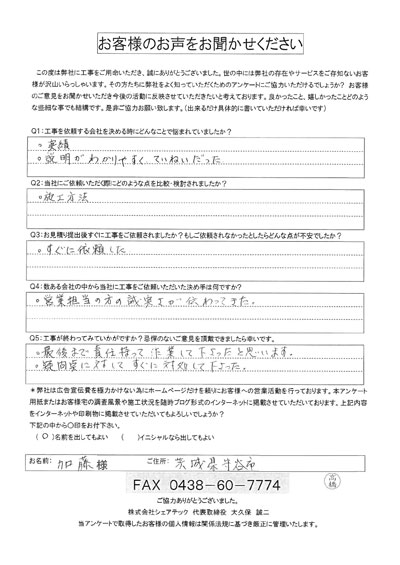 お客様のお声をお聞かせください
この度は弊社に工事をご用命いただき、誠にありがとうございました。世の中には弊社の存在やサービスをご存知ないお客
様が沢山いらっしゃいます。そんな方たちに弊社をよく知っていただくためのアンケートにご協力いただけるでしょうか? お客様
のご意見をお聞かせいただき今後の活動に反映させていただきたいと考えております。良かったこと、嬉しかったことどのよう
な些細な事でも結構です。是非ご協力お願い致します。(出来るだけ具体的に書いていただければ幸いです)
Q1:工事を依頼する会社を決める時にどんなことで悩まれていましたか?
○実績
○説明がわかりやすく、ていねいだった
Q2:当社にご依頼いただく際にどのような点を比較・検討されましたか?
○施工方法
Q3:お見積り提出後すぐに工事をご依頼されましたか?もしご依頼されなかったとしたらどんな点が不安でしたか?
○すぐに依頼した
Q4:数ある会社の中から当社に工事をご依頼いただいた決め手は何ですか?
○営業担当の方の誠実さが伝わってきた。
Q5:工事が終わってみていかがですか?忌憚のないご意見を頂戴できましたら幸いです。
○最後まで責任持って作業して下さったと思います。
○疑問点に対してすぐに対処して下さった。
*弊社は広告宣伝費を極力かけない為にホームページだけを頼りにお客様への営業活動を行っております。本アンケート
用紙またはお客様宅の調査風景や施工状況を随時ブログ形式のインターネットに掲載させていただいております。上記内容
をインターネットや印刷物に掲載させていただいてもよろしいでしょうか?
下記の中から○印をお付下さい。
(○)名前を出してもよい ( )イニシャルなら出してもよい
お名前: 加藤 様 ご住所: 茨城県守谷市
FAX 0438-60-7774
ご協力ありがとうございました。
株式会社シェアテック 代表取締役 大久保 誠二
当アンケートで取得したお客様の個人情報は関係法規に基づき厳正に管理いたします。